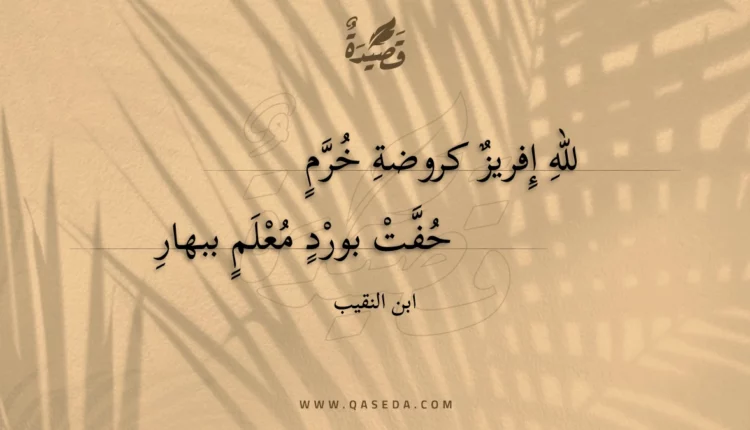 قَصِيدَةٌ
للهِ إِفريزٌ كروضةِ خُرَّمٍ
حُفَّتْ بورْدٍ مُعْلَمٍ ببهارِ
ابن النقيب
WWW.QASEDA.COM